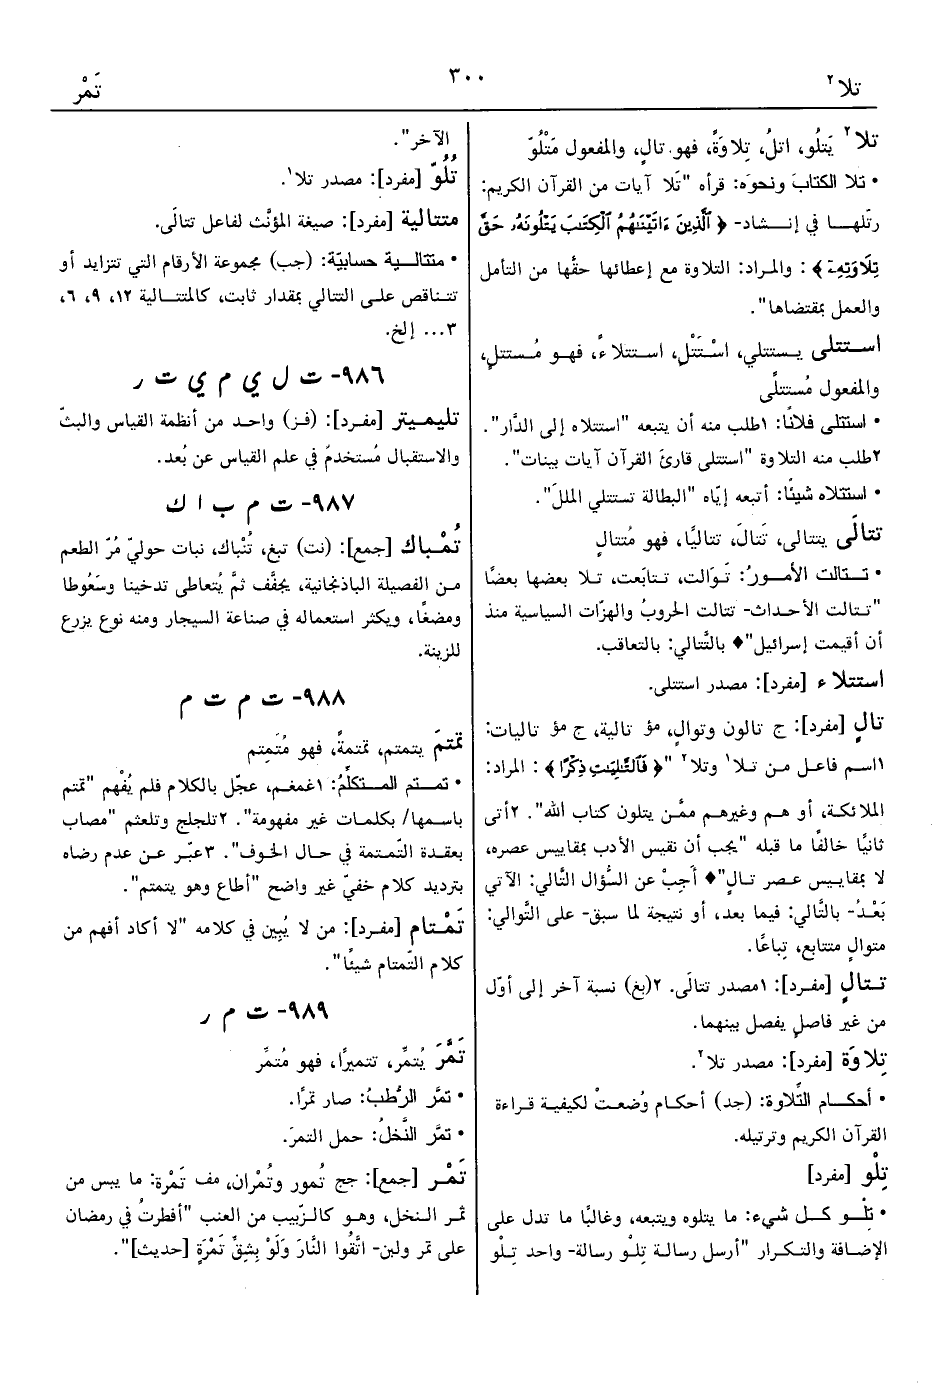 تلا٢
٣٠٠
تَمْر
تلا٢ يَتلُو، اتلُ، تِلاوَةً، فهو تالٍ، والمفعول مَتْلُوّ
• تلا الكتابَ ونحوَه: قرأه "تَلا آيات من القرآن الكريم:
رتّلهـا في إنـشاد- ﴿ ٱلَّذِينَ ءَاتَيْنَٰهُمُ ٱلْكِتَٰبَ يَتْلُونَهُۥ حَقَّ
تِلَاوَتِهِۦٓ ﴾ : والمراد: التلاوة مع إعطائها حقَّها من التأمل
والعمل بمقتضاها".
استتلى يستتلي، اسْتَتْلِ، استتلاءً، فهو مُستتلٍ،
والمفعول مُستتلًى
• استتلى فلانًا: ١طلب منه أن يتبعه "استتلاه إلى الدَّار".
٢طلب منه التلاوة "استتلى قارئ القرآن آيات بينات".
• استتلاه شيئًا: أتبعه إيّاه "البطالة تستتلي المللَ".
تتالَى يتتالى، تَتالَ، تتاليًا، فهو مُتتالٍ
• تتالت الأمورُ: تَوالت، تتابَعت، تلا بعضها بعضًا
"تتالت الأحداث- تتالت الحروبُ والهزّات السياسية منذ
أن أقيمت إسرائيل"♦ بالتَّتالي: بالتعاقب.
استتلاء [مفرد]: مصدر استتلى.
تالٍ [مفرد]: ج تالون وتوالٍ، مؤ تالية، ج مؤ تاليات:
١اسم فاعل من تلا١ وتلا٢ "﴿ فَٱلتَّٰلِيَٰتِ ذِكْرًا ﴾ : المراد:
الملائكة، أو هم وغيرهم ممَّن يتلون كتاب الله". ٢أتى
ثانيًا خالفًا ما قبله "يجب أن نقيس الأدب بمقاييس عصره،
لا بمقاييس عصر تالٍ"♦ أَجِبْ عن السُّؤال التَّالي: الآتي
بَعْدُ- بالتَّالي: فيما بعد، أو نتيجة لما سبق- على التَّوالي:
متوالٍ متتابع، تِباعًا.
تتالٍ [مفرد]: ١مصدر تتالَى. ٢(بغ) نسبة آخر إلى أوّل
من غير فاصلٍ يفصل بينهما.
تِلاوَة [مفرد]: مصدر تلا٢.
• أحكام التِّلاوة: (جد) أحكام وُضعتْ لكيفية قراءة
القرآن الكريم وترتيله.
تِلْو [مفرد]
• تِلْو كل شيء: ما يتلوه ويتبعه، وغالبًا ما تدل على
الإضافة والتكرار "أرسل رسالة تِلْو رسالة- واحد تِلْو
الآخر".
تُلُوّ [مفرد]: مصدر تلا١.
متتالية [مفرد]: صيغة المؤنَّث لفاعل تتالَى.
• متتالية حسابيّة: (جب) مجموعة الأرقام التي تتزايد أو
تتناقص على التتالي بمقدار ثابت، كالمتتالية ١٢، ٩، ٦،
٣... إلخ.
٩٨٦- ت ل ي م ي ت ر
تليميتر [مفرد]: (فز) واحد من أنظمة القياس والبثّ
والاستقبال مُستخدمٌ في علم القياس عن بُعد.
٩٨٧- ت م ب ا ك
تُمْباك [جمع]: (نت) تبغ، تُنْباك، نبات حوليّ مُرّ الطعم
من الفصيلة الباذنجانية، يجفَّف ثمَّ يُتعاطى تدخينا وسَعُوطا
ومضغًا، ويكثر استعماله في صناعة السيجار ومنه نوع يزرع
للزينة.
٩٨٨- ت م ت م
تمتمَ يتمتم، تمتمةً، فهو مُتَمتِم
• تمتم المتكلِّمُ: ١غمغم، عجّل بالكلام فلم يُفْهم "تمتم
باسمها/ بكلمات غير مفهومة". ٢تلجلج وتلعثم "مصاب
بعقدة التَّمتمة في حال الخوف". ٣عبّر عن عدم رضاه
بترديد كلام خفيّ غير واضح "أطاع وهو يتمتم".
تَمْتام [مفرد]: من لا يُبِين في كلامه "لا أكاد أفهم من
كلام التَّمتام شيئًا".
٩٨٩- ت م ر
تَمَّرَ يُتمِّر، تتميرًا، فهو مُتمِّر
• تمَّر الرُّطبُ: صار تمرًا.
• تمَّر النَّخلُ: حمل التمرَ.
تَمْر [جمع]: جج تُمور وتُمْران، مف تَمْرة: ما يبس من
ثمر النخل، وهو كالزّبيب من العنب "أفطرتُ في رمضان
على تمر ولبن- اتَّقُوا النَّارَ وَلَوْ بِشِقِّ تَمْرَةٍ [حديث]".